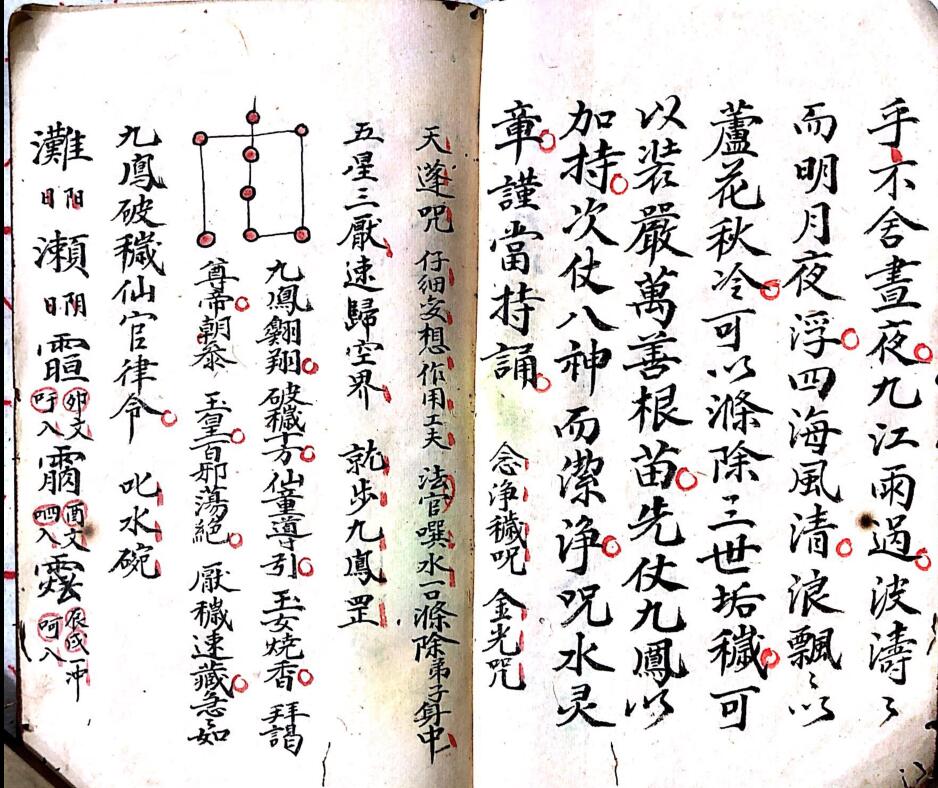 乎不舍晝夜九江雨過波濤々
而明月夜浮四海風清浪飄々以
蘆花秋冷可以滌除三世垢穢可
以裝嚴萬善根苗先仗九鳳以
加持次仗八神而潔淨咒水灵
章謹當持誦 念淨穢咒 金光咒
天蓬咒 仔細安想作用工夫 法官噀水一口滌除弟子身中
五星三厭速歸空界 就步九鳳罡
九鳳翺翔破穢十方仙童導引玉女燒香 拜謁
尊帝朝參 玉皇百邪蕩絕 厭穢速藏急如
九鳳破穢仙官律令 叱水碗
灘日陽瀨日阴 卯文吁入 酉文呬入 辰戌冲呵入